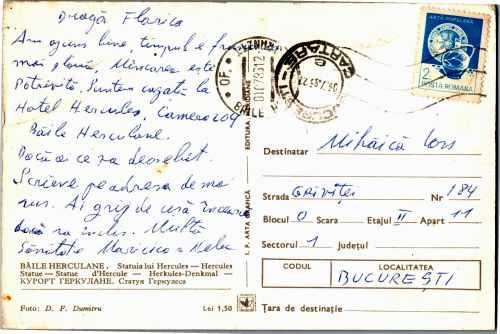 Dragă Florica
Am ajuns bine, timpul e frumos
mai plouă, Mîncarea este
Potrivită. Suntem cazată la
Hotel Hercules, Camera 204
Băile Herculane.
Dacă e ce va deosebit.
Scrieve pe adresa de mai
sus. Ai grijă de casă
dacă va inclus. Multă
Sănătate Maricica
BĂILE HERCULANE. Statuia lui Hercules — Hercules
Statue — Statue d'Hercule — Herkules-Denkmal —
КУРОРТ ГЕРКУЛАНЕ. Статуя Геркулеса
Foto: D. F. Dumitru Lei 1,50
I. P. ARTA GRAFICĂ
EDITURA
OF.
BĂILE
CARTARE
BUCUREȘTI
ARTA POPULARA
2
POSTA ROMANA
Destinatar Mihăică Ion
Strada Griviței Nr 184
Blocul 0 Scara Etajul II Apart 11
Sectorul 1 Județul
CODUL LOCALITATEA
BUCUREȘTI
Țara de destinație